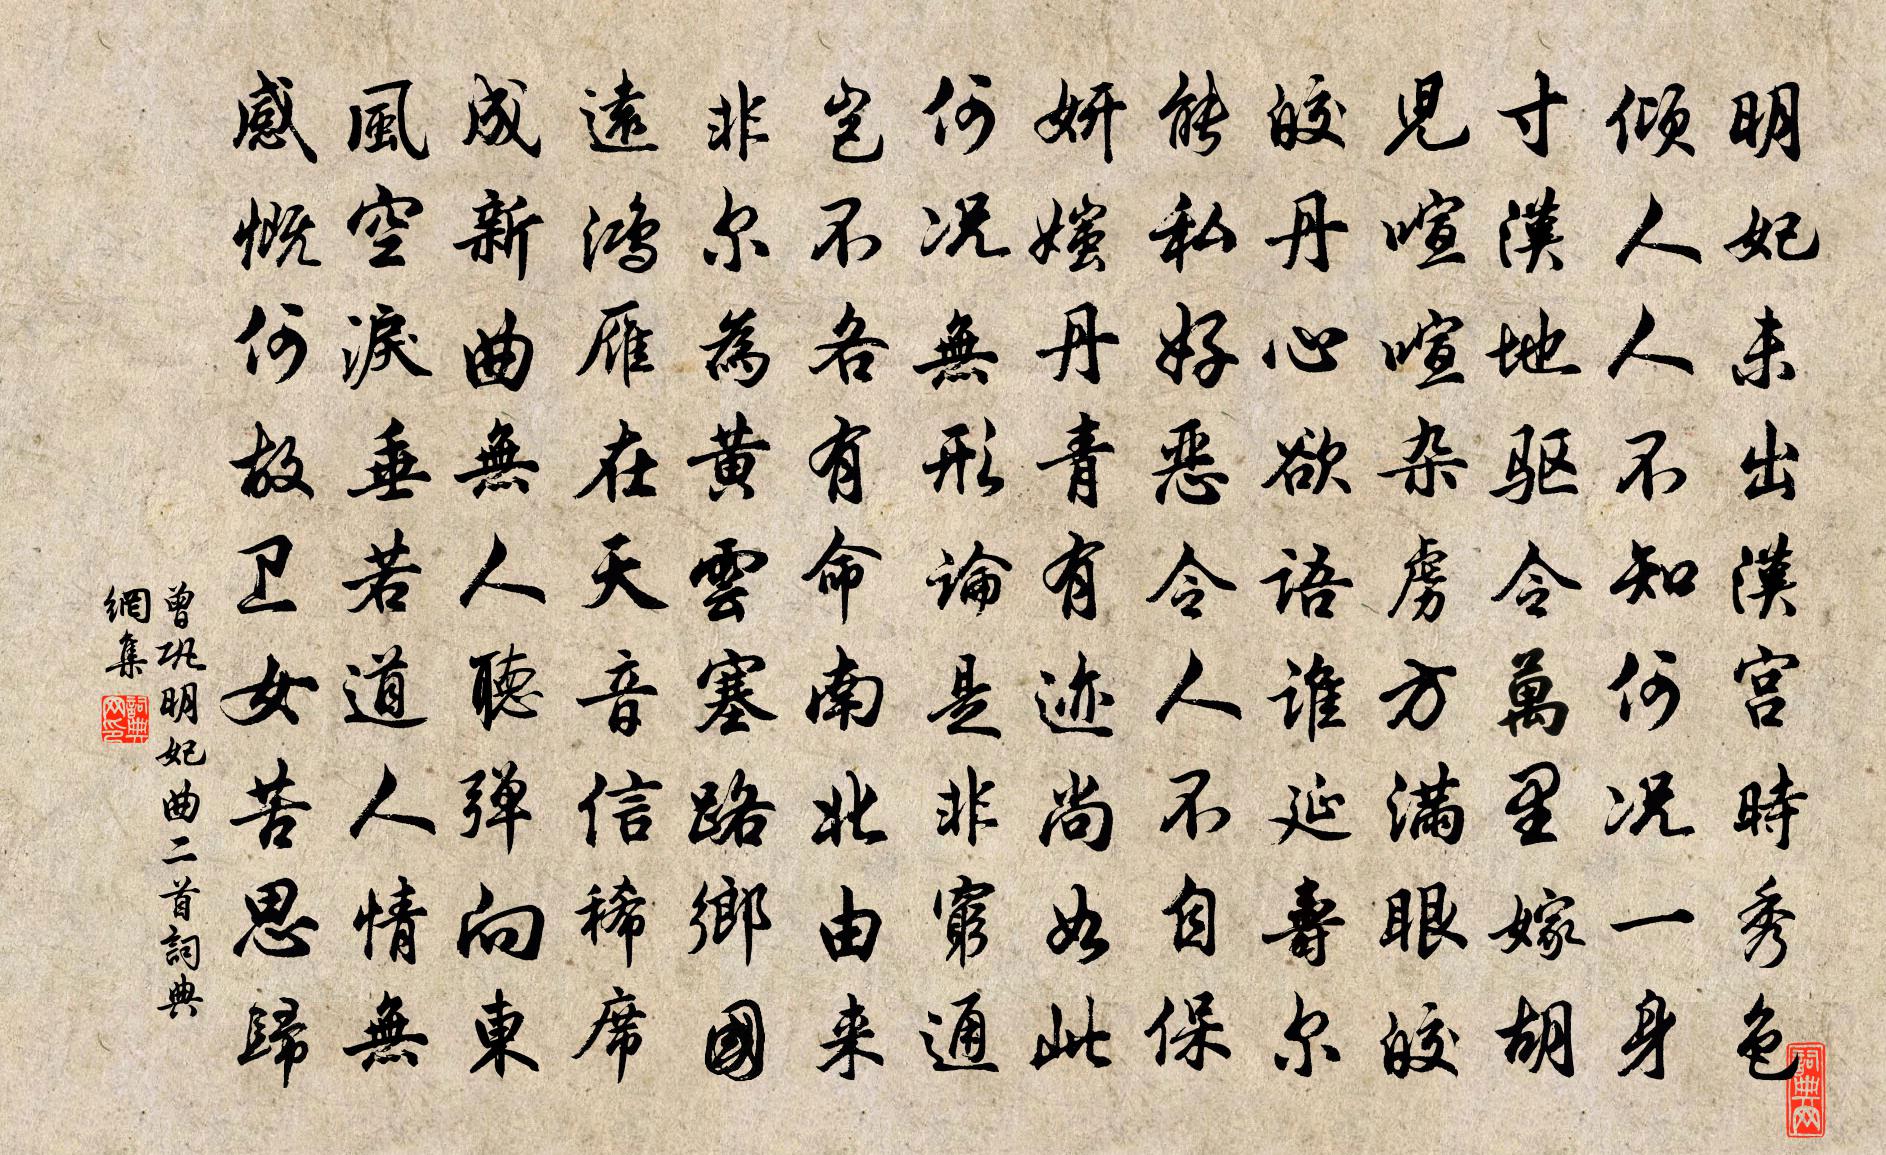 明妃未出漢宫時秀色
倾人人不知何况一身
寸漢地驱令萬里嫁胡
児喧喧杂虏方满眼皎
皎丹心欲语谁延壽尔
能私好恶令人不自保
妍媸丹青有迹尚如此
何况無形論是非窮通
岂不各有命南北由来
非尔為黄雲塞路鄉國
遠鸿雁在天音信稀席
成新曲無人聴弹向東
風空淚垂若道人情無
感慨何故卫女苦思歸
曾巩明妃曲二首詞典
網集
詞典网印
詞典网